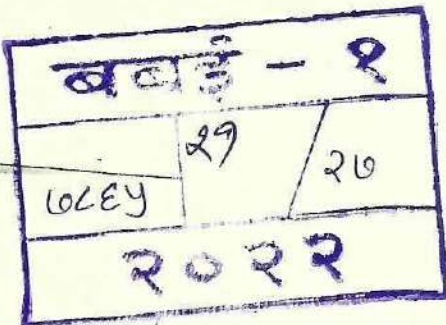 बबई - १
७८६५ २१ / २७
२०२२